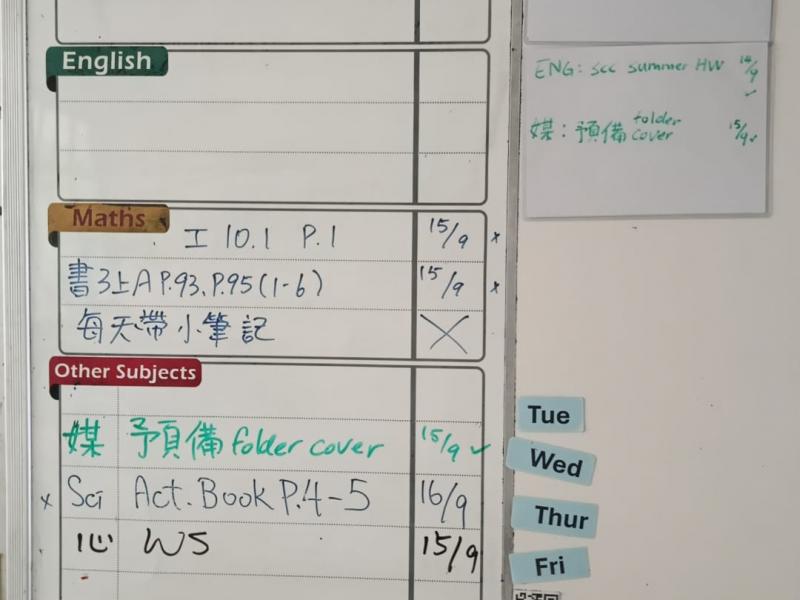 English
Maths
工 10.1 P.1 15/9 x
書3上A P.93, P.95(1-6) 15/9 x
每天帶小筆記
Other Subjects
媒 預備 folder cover 15/9 ✓
x Sci Act. Book P.4-5 16/9
心 WS 15/9
ENG: scc summer HW 14/9 ✓
媒: 預備 folder cover 15/9 ✓
Tue
Wed
Thur
Fri